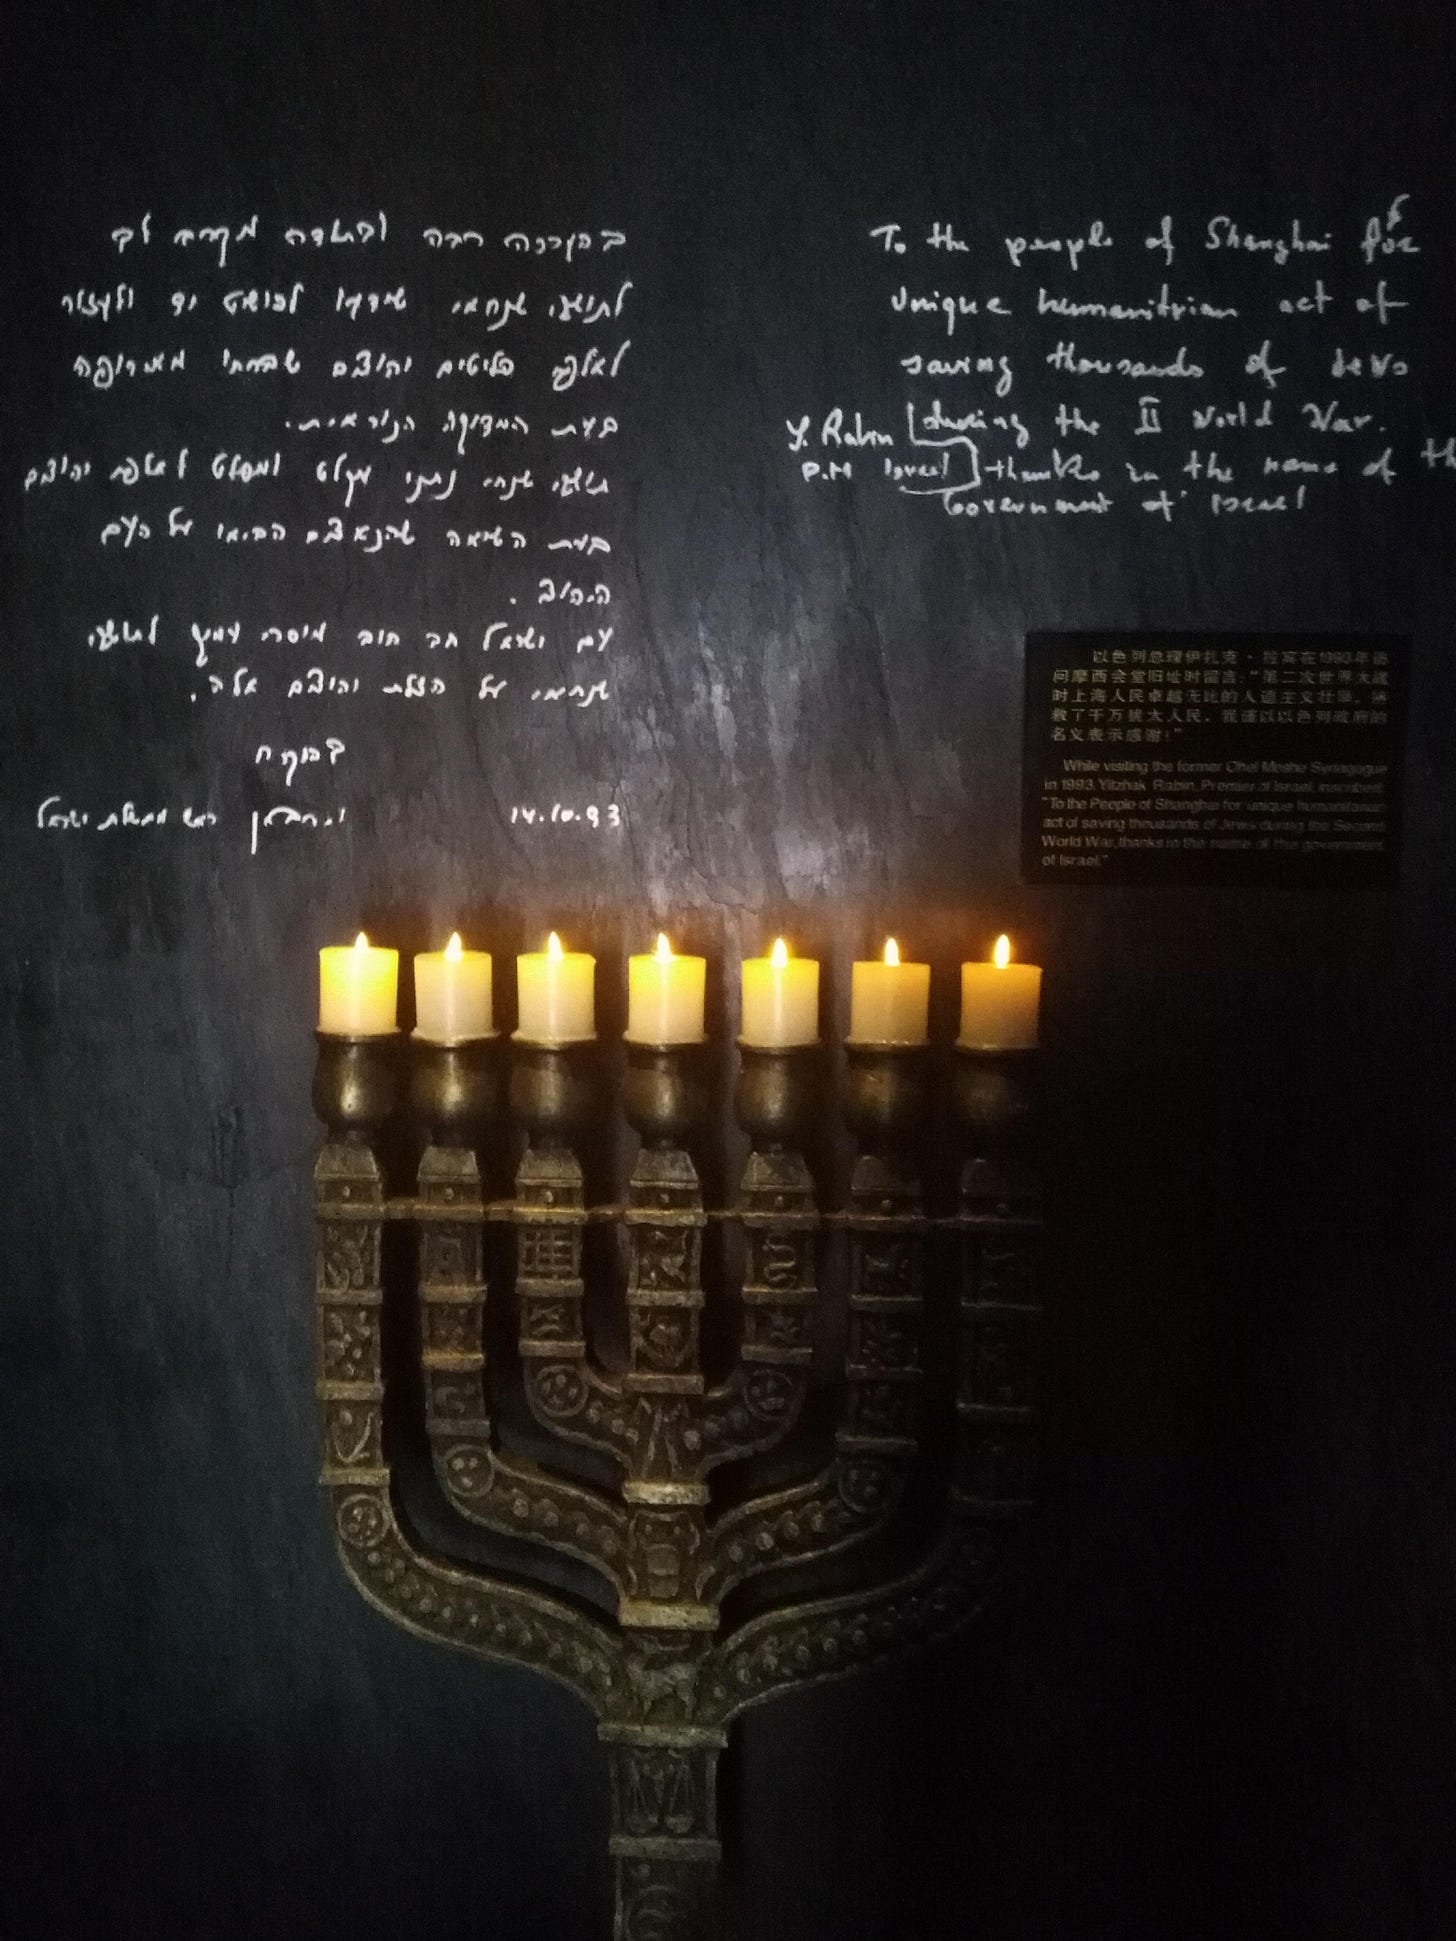 בהוקרה רבה ובתודה מקרב לב
לתושבי שנחאי שידעו להושיט יד ולעזור
לאלפי פליטים יהודים שברחו מאירופה
בעת המצוקה הנוראית.
תושבי שנחאי נתנו מקלט ומפלט לאלפי יהודים
בעת השואה שהנאצים הביאו על העם
היהודי.
עם ישראל חב חוב מוסרי עמוק לתושבי
שנחאי על הצלת יהודים אלה.
14.10.93 י. רבין ראש ממשלת ישראל
To the people of Shanghai for
unique humanitarian act of
saving thousands of Jews
Y. Rabin during the II World War.
P.M Israel thanks in the name of the
Government of Israel
以色列总理伊扎克·拉宾在1993年访
问摩西会堂旧址时留言:“第二次世界大战
时上海人民卓越无比的人道主义壮举，拯
救了千万犹太人民，我谨以以色列政府的
名义表示感谢!”
While visiting the former Ohel Moshe Synagogue
in 1993, Yitzhak Rabin, Premier of Israel, inscribed:
"To the People of Shanghai for unique humanitarian
act of saving thousands of Jews during the Second
World War, thanks in the name of the government
of Israel."